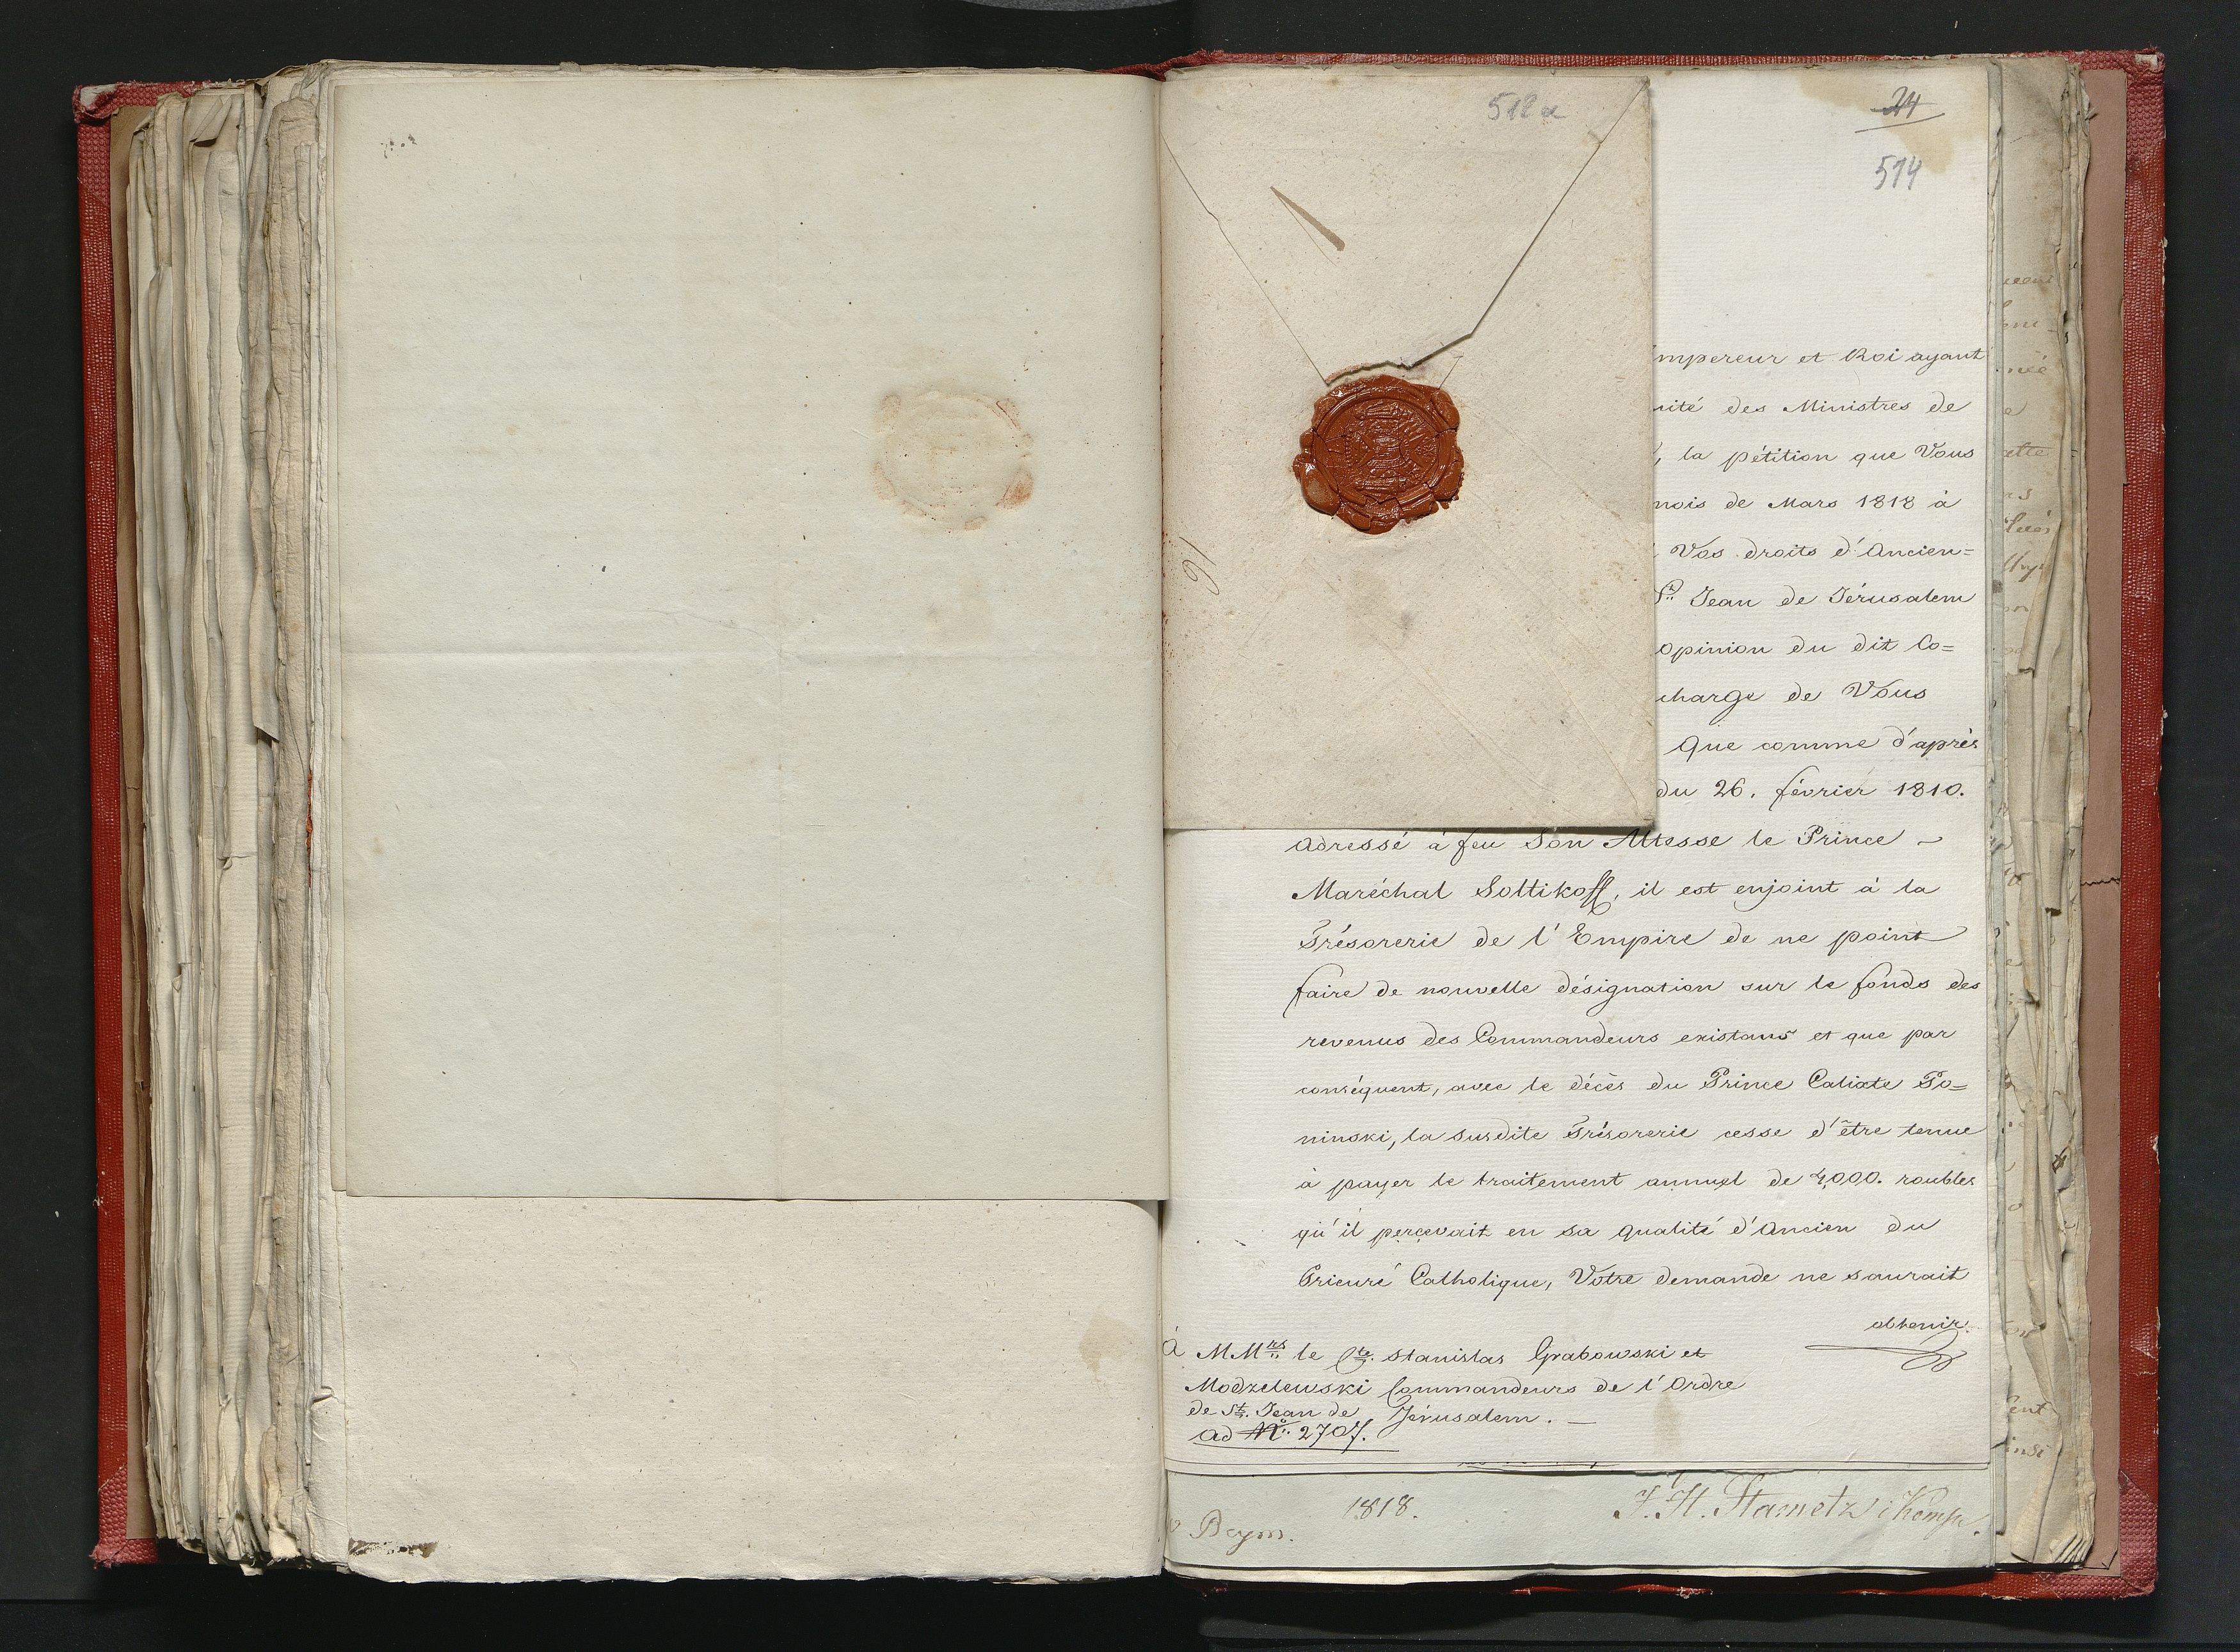 512a
24
514
mpereur et Roi ayant
ité des Ministres de
, la pétition que Vous
mois de Mars 1818 à
Vos droits d'Ancien=
St. Jean de Jérusalem
opinion du dit Co=
charge de Vous
Que comme d'après
du 26. février 1810.
adressé à feu Son Altesse le Prince
Maréchal Soltikoff, il est enjoint à la
Trésorerie de l'Empire de ne point
faire de nouvelle désignation sur le fonds des
revenus des Commandeurs existans et que par
conséquent, avec le décès du Prince Calixte Po=
ninski, la susdite Trésorerie cesse d'être tenue
à payer le traitement annuel de 4,000. roubles
qu'il percevait en sa qualité d'Ancien du
Prieuré Catholique, Votre demande ne saurait
obtenir.
à MMrs le Cte. Stanislas Grabowski et
Modzelewski Commandeurs de l'Ordre
de St. Jean de Jérusalem. —
ad No. 2707.
1818.
Beym.